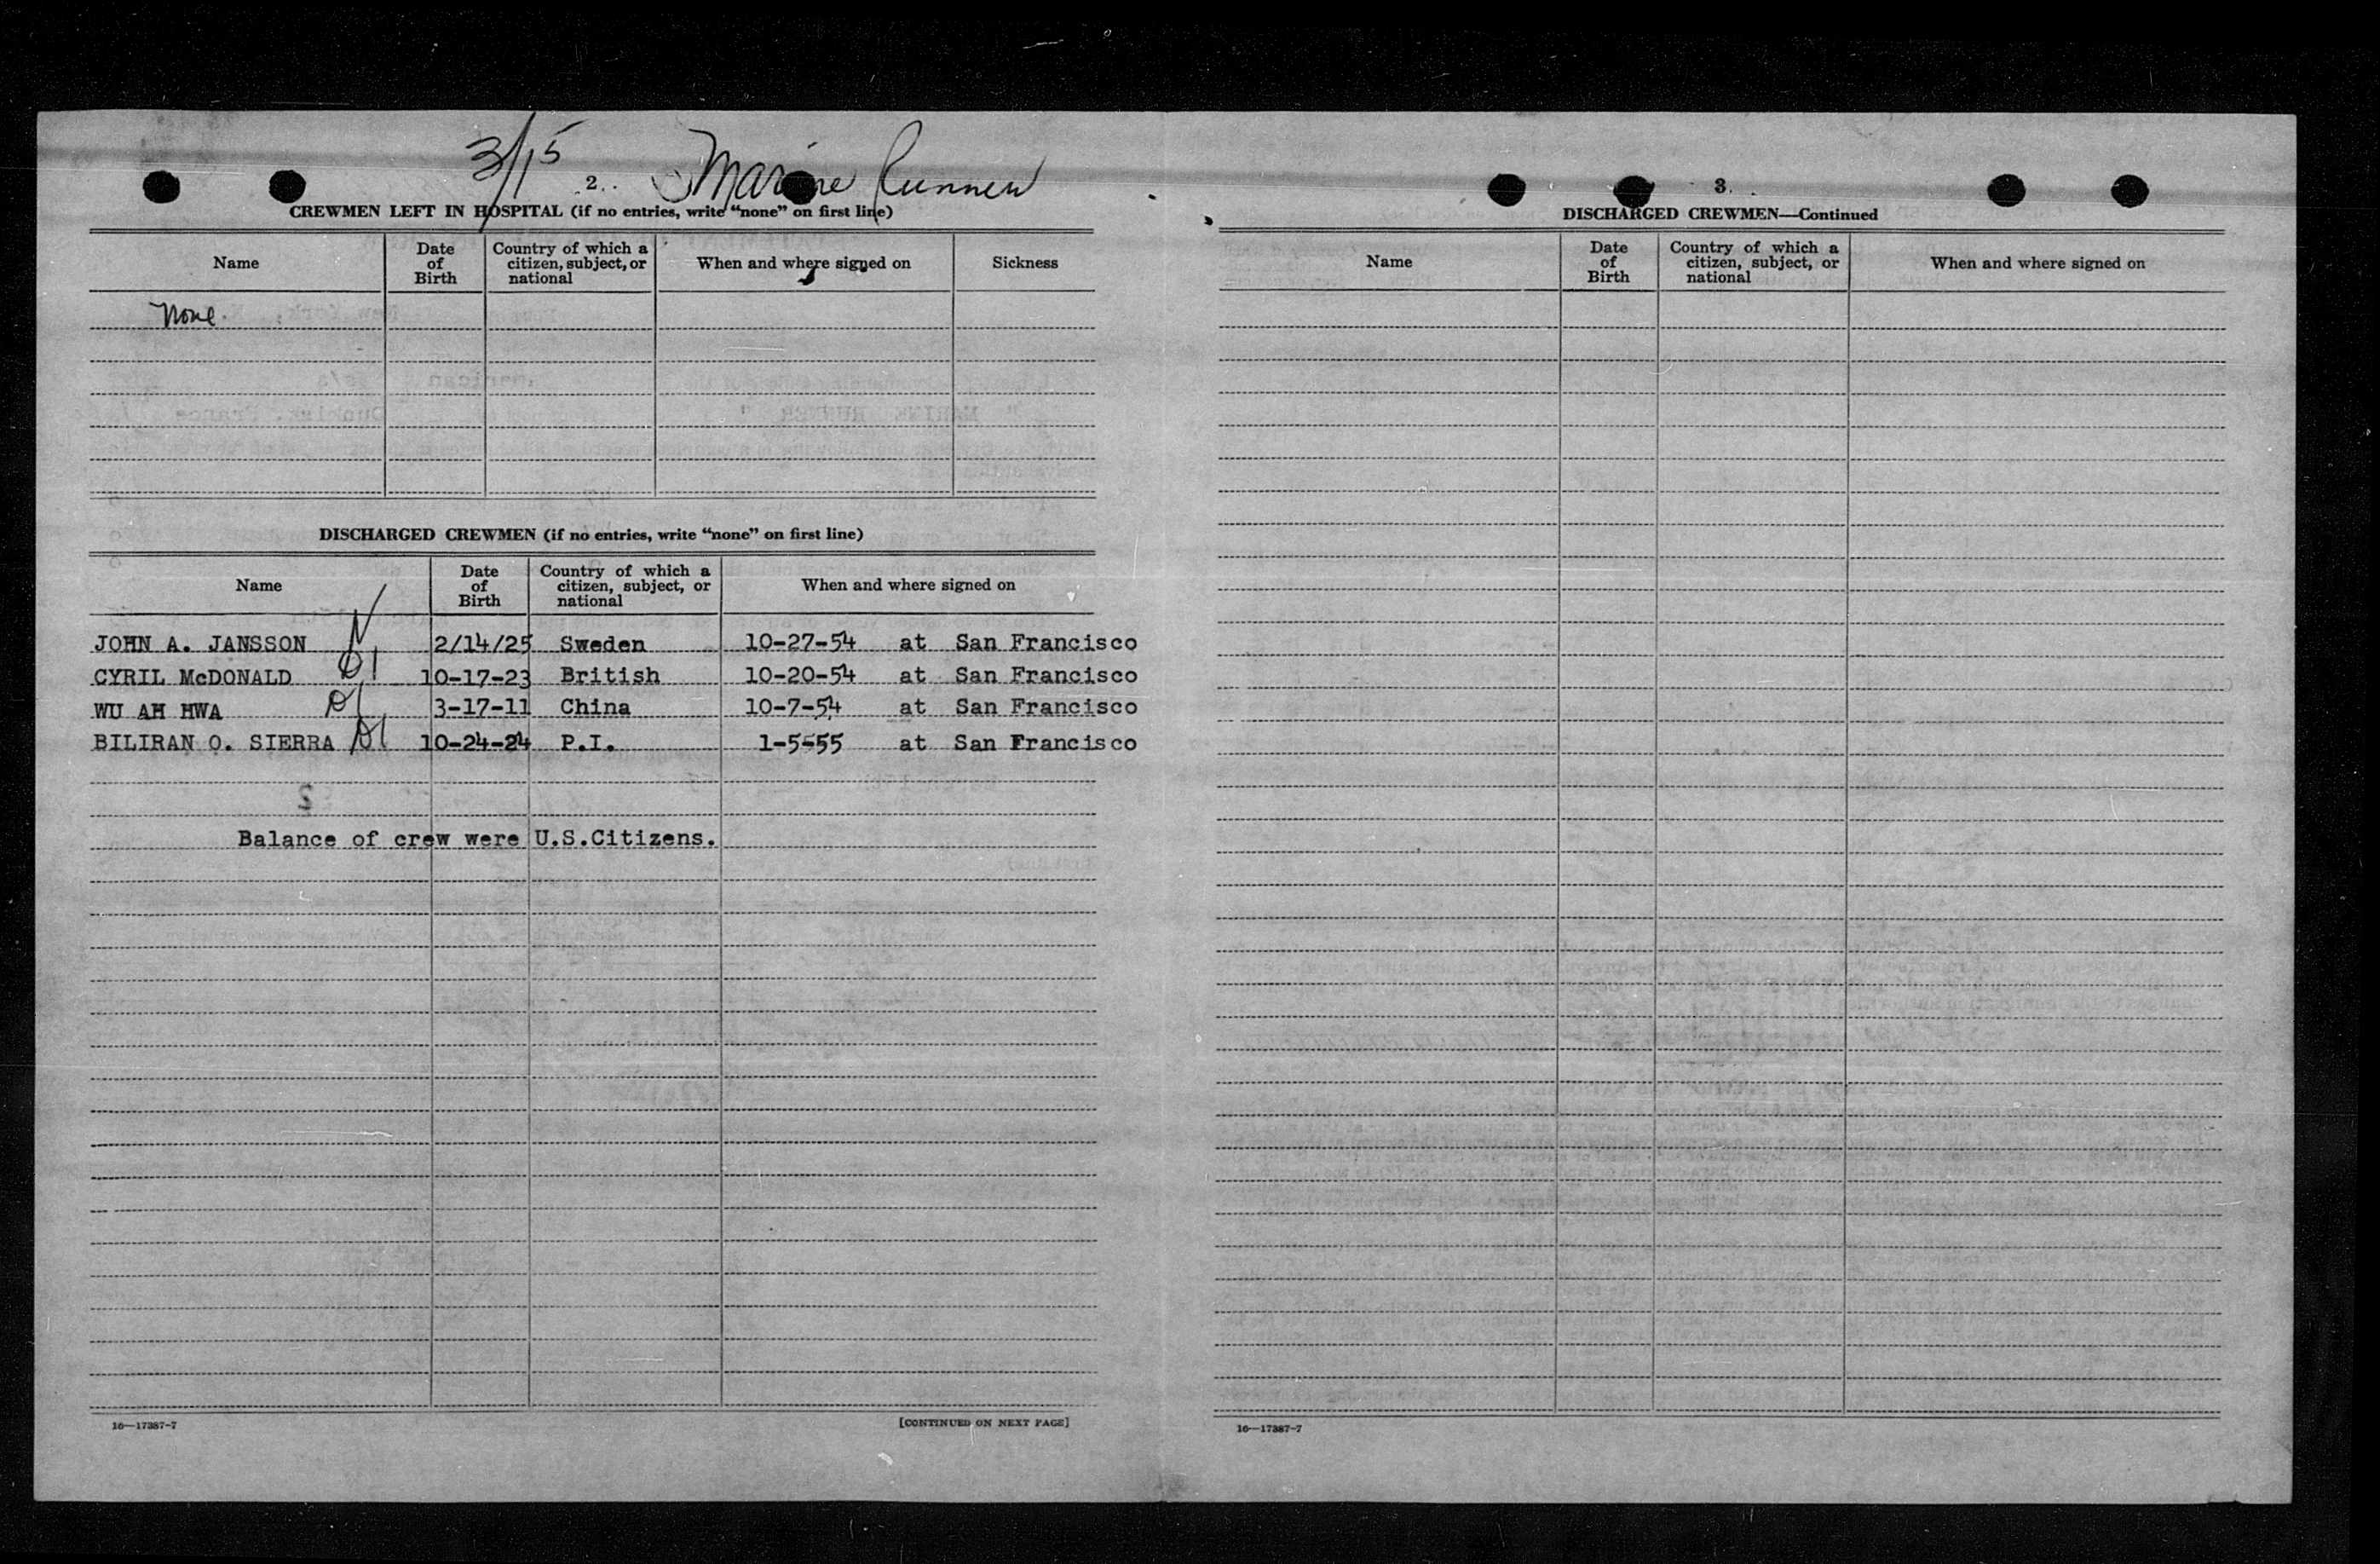 3/15 2. Marine Runner
CREWMEN LEFT IN HOSPITAL (if no entries, write “none” on first line)
Name Date of Birth Country of which a citizen, subject, or national When and where signed on Sickness
None.
DISCHARGED CREWMEN (if no entries, write “none” on first line)
Name Date of Birth Country of which a citizen, subject, or national When and where signed on
JOHN A. JANSSON 2/14/25 Sweden 10-27-54 at San Francisco
CYRIL McDONALD 10-17-23 British 10-20-54 at San Francisco
WU AH HWA 3-17-11 China 10-7-54 at San Francisco
BILIRAN O. SIERRA 10-24-24 P.I. 1-5-55 at San Francisco
Balance of crew were U.S.Citizens.
16—17387-7 [CONTINUED ON NEXT PAGE]
3.
DISCHARGED CREWMEN—Continued
Name Date of Birth Country of which a citizen, subject, or national When and where signed on
16—17387-7